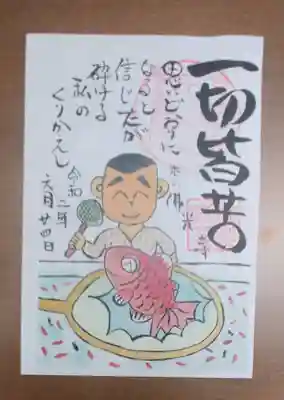 一切皆苦
佛光寺
思いどおりに
なると
信じたが
砕ける
私の
くりかえし
令和二年
六月廿四日